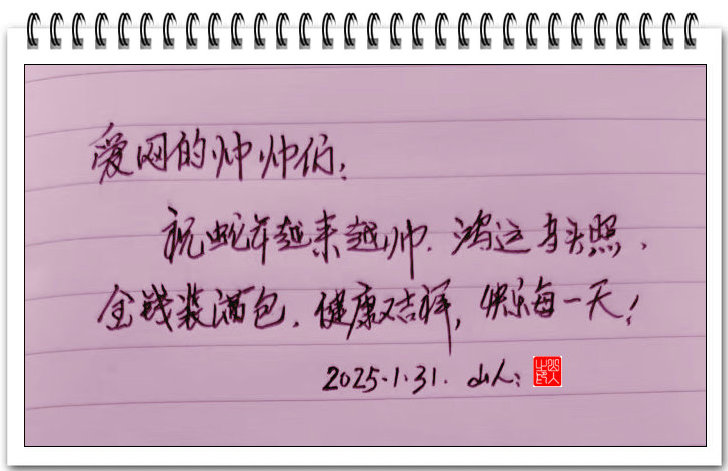 爱网的帅帅们：
祝蛇年越来越帅．鸿运当头照．
金钱装满包．健康又吉祥，快乐每一天！
2025.1.31. 山人：